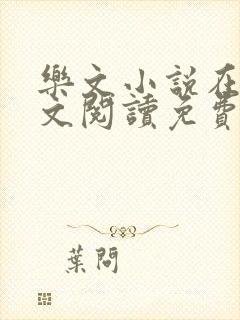 樂文小說在
文閱讀免費
葉問